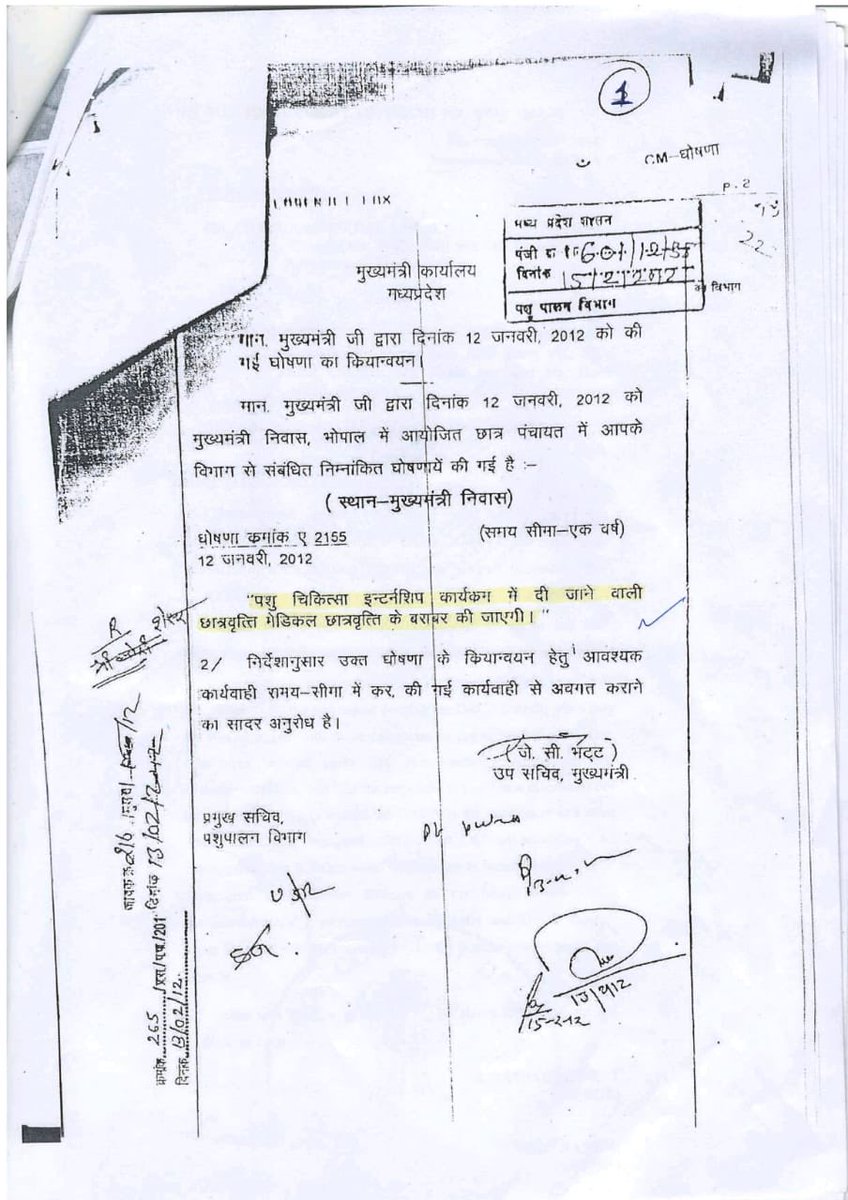 1
CM-घोषणा
P.2
मध्य प्रदेश शासन
पंजी
दिनांक 15/2/2012
पशु पालन विभाग
विभाग
मुख्यमंत्री कार्यालय
मध्यप्रदेश
मान. मुख्यमंत्री जी द्वारा दिनांक 12 जनवरी, 2012 को की
गई घोषणा का कियान्वयन।
मान. मुख्यमंत्री जी द्वारा दिनांक 12 जनवरी, 2012 को
मुख्यमंत्री निवास, भोपाल में आयोजित छात्र पंचायत में आपके
विभाग से संबंधित निम्नांकित घोषणायें की गई है :-
( स्थान-मुख्यमंत्री निवास)
घोषणा कमांक ए 2155 (समय सीमा-एक वर्ष)
12 जनवरी, 2012
"पशु चिकित्सा इन्टर्नशिप कार्यकम में दी जाने वाली
छात्रवृत्ति मेडिकल छात्रवृत्ति के बराबर की जाएगी। "
2/ निर्देशानुसार उक्त घोषणा के कियान्वयन हेतु आवश्यक
कार्यवाही समय-सीमा में कर, की गई कार्यवाही से अवगत कराने
का सादर अनुरोध है।
(जे. सी. भट्ट)
उप सचिव, मुख्यमंत्री
प्रमुख सचिव,
पशुपालन विभाग
13/2/12
15-2-12
R
आवक क्र. 216 दिनांक 13/02/2012
क्रमांक 265 /प्रस/पप/201
दिनांक 13/02/12